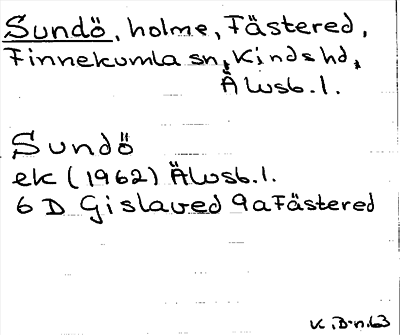 Sundö, holme, Fästered,
Finnekumla sn, Kinds hd,
Älvsb. l.
Sundö
ek (1962) Älvsb. l.
6 D Gislaved 9a Fästered
K.B-n.63